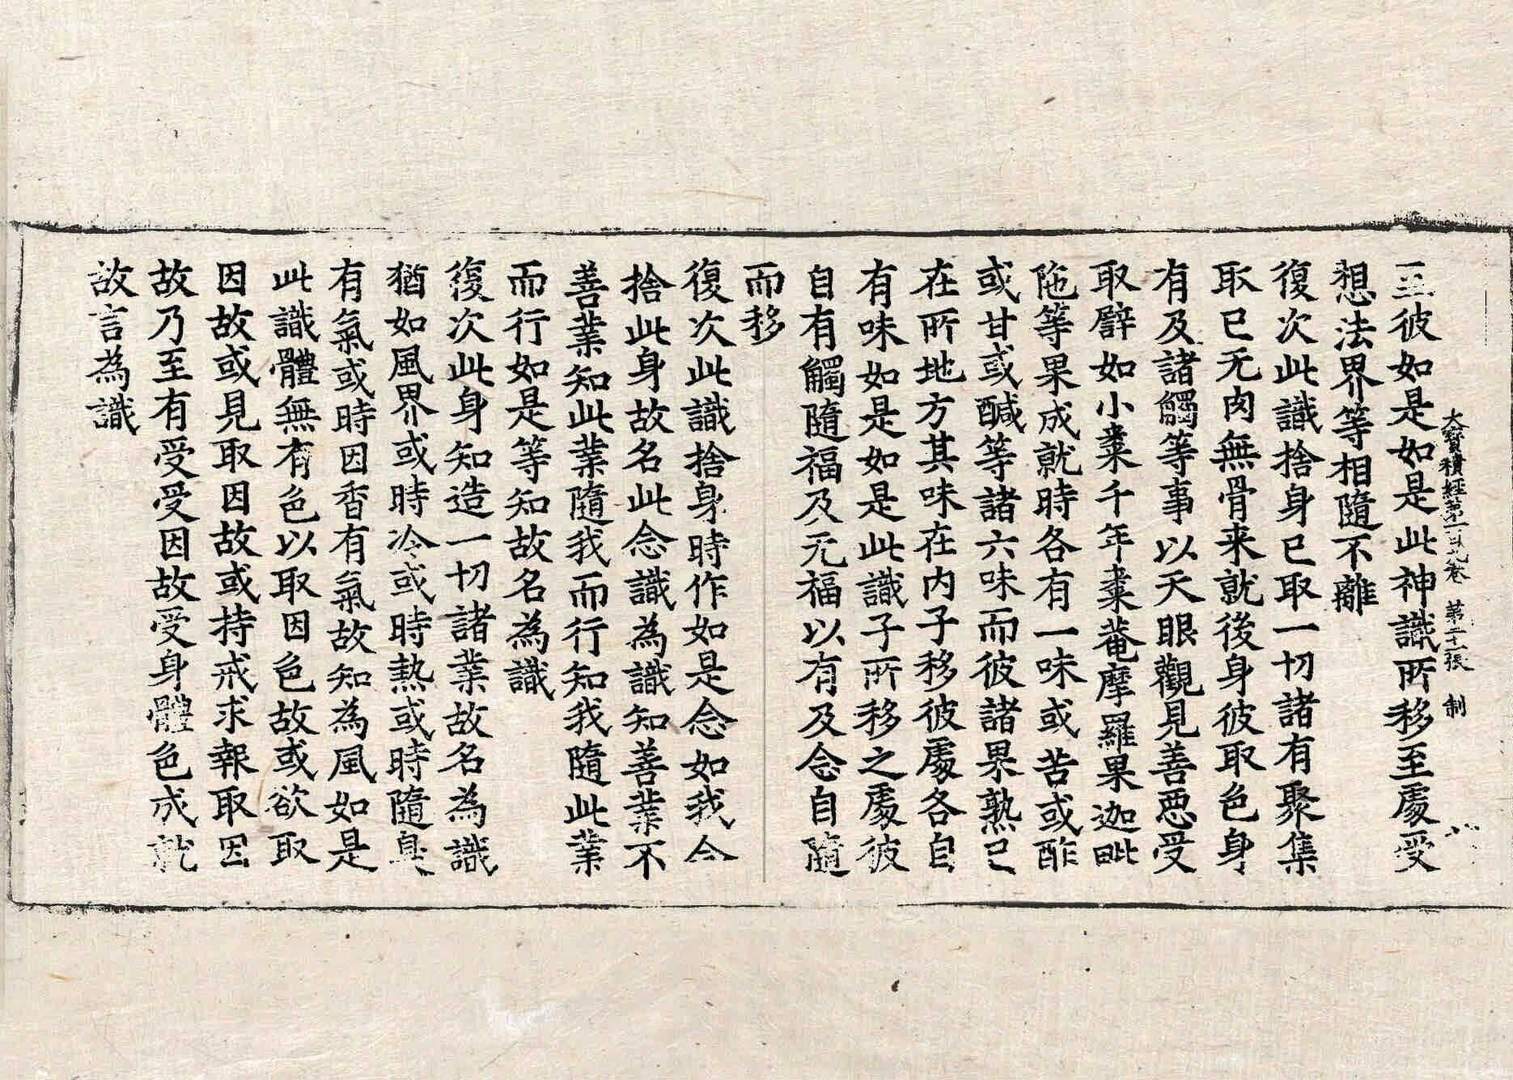 大寶積經第一百九卷　第二十一張　制
至彼如是如是此神識所移至處受
想法界等相隨不離
復次此識捨身已取一切諸有聚集
取已无肉無骨来就後身彼取色身
有及諸觸等事以天眼觀見善惡受
取譬如小棗千年棗菴摩羅果迦毗
陁等果成就時各有一味或苦或酢
或甘或醎等諸六味而彼諸果熟已
在所地方其味在内子移彼處各自
有味如是如是此識子所移之處彼
自有觸隨福及无福以有及念自隨
而移
復次此識捨身時作如是念如我今
捨此身故名此念識為識知善業不
善業知此業隨我而行知我隨此業
而行如是等知故名為識
復次此身知造一切諸業故名為識
猶如風界或時冷或時熱或時隨臭
有氣或時因香有氣故知為風如是
此識體無有色以取因色故或欲取
因故或見取因故或持戒求報取因
故乃至有受受因故受身體色成就
故言為識